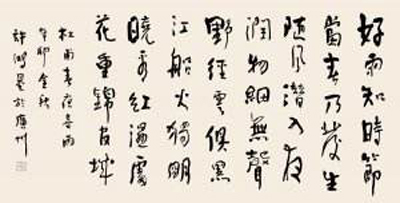 好雨知時節
當春乃發生
隨風潛入夜
潤物細無聲
野徑雲俱黑
江船火獨明
曉看紅濕處
花重錦官城
杜甫春夜喜雨
辛卯金秋
許鴻於廣州